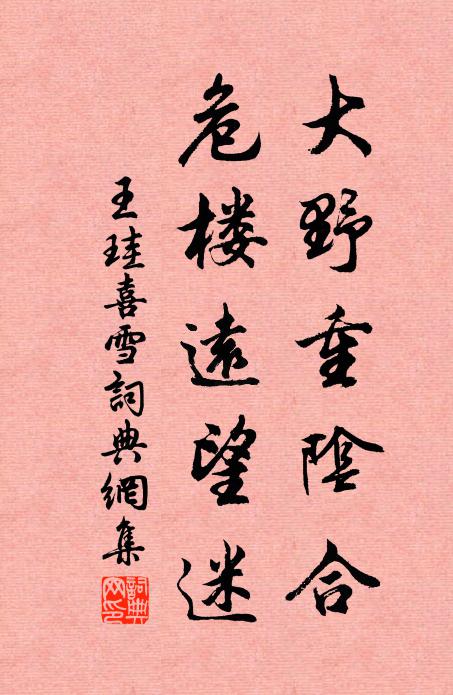 大野重陰合
危楼遠望迷
王珪喜雪詞典網集
詞典网印